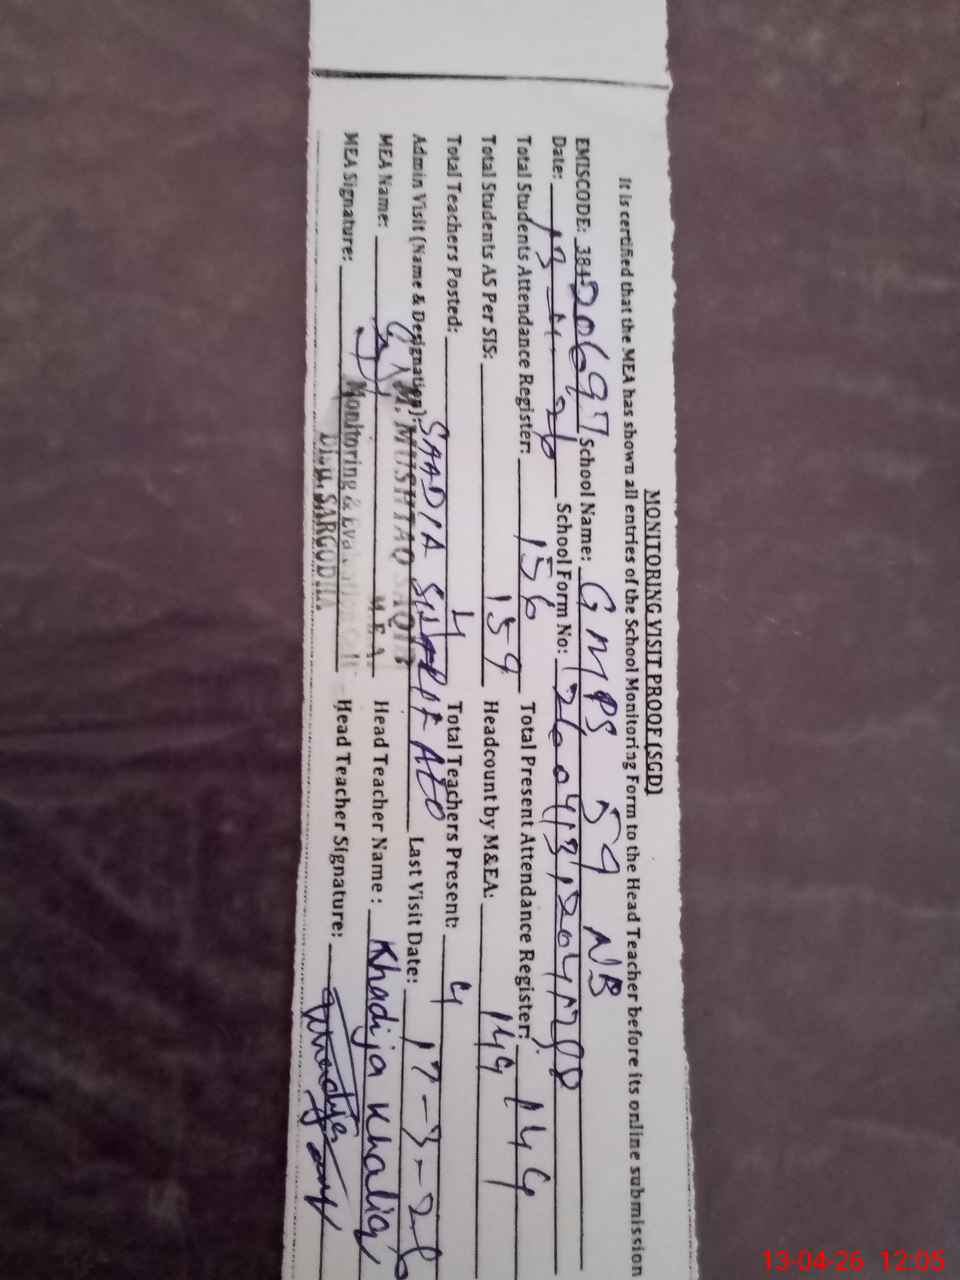 MONITORING VISIT PROOF (SGD)
It is certified that the MEA has shown all entries of the School Monitoring Form to the Head Teacher before its online submission
EMISCODE: 384 School Name: GMPS 59 NB
Date: 13-4-26 School Form No:
Total Students Attendance Register: 156 Total Present Attendance Register: 144
Total Students AS Per SIS: 159 Headcount by M&EA: 144
Total Teachers Posted: 4 Total Teachers Present: 4
Admin Visit (Name & Designation): SAADIA AEO Last Visit Date: 17-3-26
MEA Name: Head Teacher Name: Khadija Khaliq
M. MUSHTAQ SAQIB
M.E.A
MEA Signature: Head Teacher Signature:
Monitoring &
Distt. SARGODHA
13-04-26 12:05